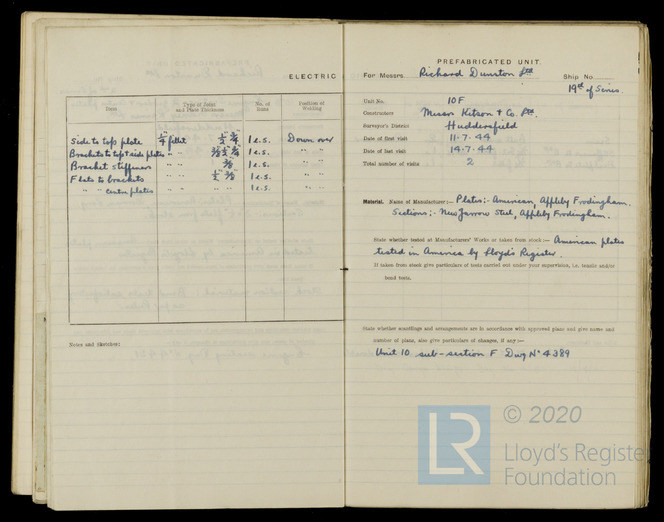 ELECTRIC
State
Type of Joint and Plate Thickness
No. of Runs
Position of Welding
Side to top plate ¼" fillet ½" ¾" 1 e.s. Down over
Brackets to top & side plates " " 3/8" ½" ¾" 1 e.s. " "
Bracket stiffeners " " 3/8" 1 e.s. " "
Flats to brackets " " ½" 3/8" 1 e.s. " "
" " centre plates " " " " 1 e.s. " "
Notes and Sketches:
PREFABRICATED UNIT.
For Messrs. Richard Dunston Ltd Ship No.
19th of Series.
Unit No. 10F
Constructors Messrs Kitson & Co. Ltd.
Surveyor's District Huddersfield
Date of first visit 11.7.44
Date of last visit 14.7.44
Total number of visits 2
Material. Name of Manufacturer:— Plates:- American, Appleby Frodingham.
Sections:- New Jarrow Steel, Appleby Frodingham.
State whether tested at Manufacturers' Works or taken from stock:— American plates
tested in America by Lloyd's Register.
If taken from stock give particulars of tests carried out under your supervision, i.e. tensile and/or
bend tests.
State whether scantlings and arrangements are in accordance with approved plans and give name and
number of plans, also give particulars of changes, if any:—
Unit 10 sub-section F Dwg No 4389
LR
© 2020
Lloyd's Register
Foundation